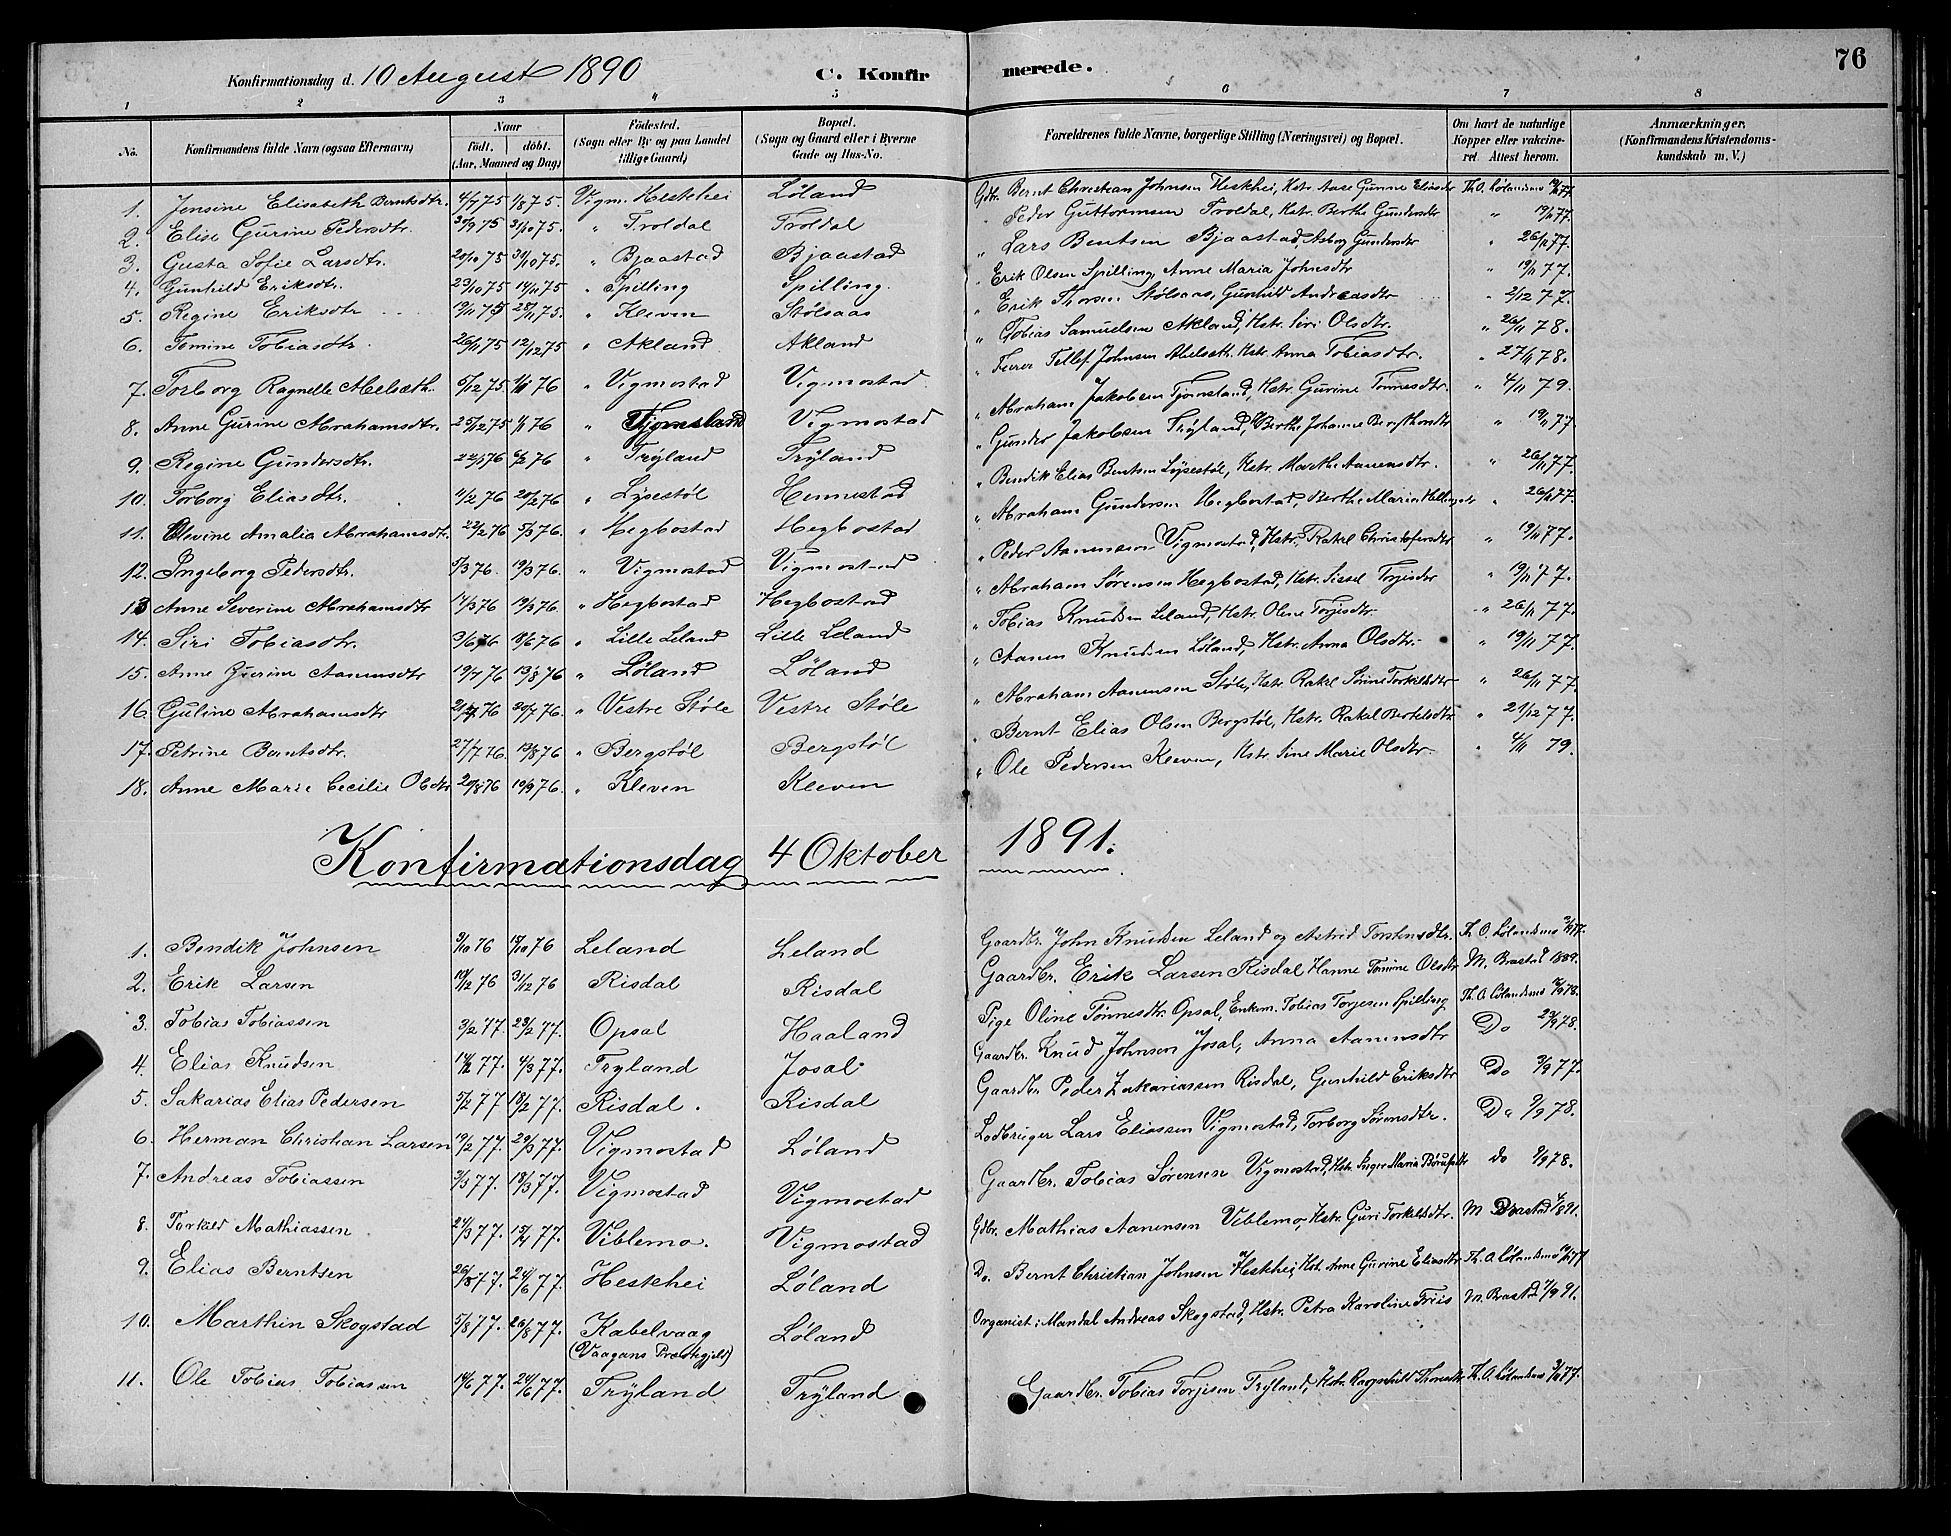 76
Konfirmationsdag d. 10 August 1890 C. Konfirmerede.
1 2 3 4 5 6 7 8
No. Konfirmandens fulde Navn (ogsaa Efternavn) Naar Födt. döbt. (Aar, Maaned og Dag) Födested. (Sogn eller By og paa Landet tillige Gaard) Bopæl. (Sogn og Gaard eller i Byerne Gade og Hus-No. Forældrenes fulde Navne, borgerlige Stilling (Næringsvei) og Bopæl. Om havt de naturlige Kopper eller vaccineret. Attest herom. Anmærkninger, (Konfirmandens Kristendomskundskab m. V.)
1. Jensine Elisabeth Berntsdtr. 4/7 75 1/8 75. Vigm. Heskhei Løland Gdbr. Bernt Christian Johnsen Heskhei, Hstr. Aase Gunne Eliasdtr Th. O. Lølandsmo 19/11 77.
2. Elise Gurine Pedersdtr. 30/9 75 31/10 75. " Troldal Troldal " Peder Guttormsen Troldal, Hstr. Berthe Gundersdtr " 19/11 77.
3. Gusta Sofie Larsdtr. 20/10 75 31/10 75. " Bjaastad Bjaastad " Lars Bentsen Bjaastad, Asborg Gundersdtr " 26/11 77.
4. Gunhild Eriksdtr. 23/10 75 14/11 75 " Spilling Spilling. " Erik Olsen Spilling, Anne Maria Johnsdtr " 19/11 77.
5. Regine Eriksdtr 19/11 75 28/11 75. " Kleven Stølsaas " Erik Thorsen Stølsaas, Gunhild Andreasdtr " 2/12 77.
6. Tomine Tobiasdtr. 26/11 75 12/12 75 " Akland Akland " Tobias Samuelsen Akland, Hstr. Siri Olsdtr. " 26/11 78.
7. Torborg Ragnelle Melseth. 5/12 75. 1/1 76 " Vigmostad Vigmostad " Tellef Johnsen Melseth. Hstr. Anna Tobiasdtr. " 27/11 78.
8. Anne Gurine Abrahamsdtr. 25/12 75 1/1 76 " Tjomsland Vigmostad " Abraham Jakobsen Tjomsland, Hstr. Gurine Tønnesdtr. " 4/11 79.
9. Regine Gundersdtr. 22/1 76 6/2 76 " Trÿland Trÿland " Gunder Jakobsen Trÿland, Berthe Johanne Bergthorsdtr " 19/11 77
10. Torborg Eliasdtr. 4/2 76 20/2 76 " Lysestøl Hennestad " Bendik Elias Bentsen Lÿsestøl, Hstr. Marthe Aanensdtr. " 26/11 77.
11. Olevine Amalia Abrahamsdtr. 22/2 76 5/3 76. " Hegbostad Hegbostad " Abraham Gundersen Hegbostad, Berthe Maria " 26/11 77.
12. Ingeborg Pedersdtr. 5/3 76. 19/3 76. " Vigmostad Vigmostad " Peder Aanensen Vigmostad, Hstr. Rakel Christofersdtr " 19/11 77.
13 Anne Severine Abrahamsdtr 14/3 76 19/3 76. " Hegbostad Hegbostad " Abraham Sørensen Hegbostad, Hstr. Sissel Torjisdtr " 19/11 77.
14. Siri Tobiasdtr. 3/6 76 18/6 76 " Lille Leland Lille Leland " Tobias Knudsen Leland, Hstr. Olene Torjisdtr. " 26/11 77.
15. Anne Gurine Aanensdtr 19/7 76 13/8 76 " Løland Løland " Aanen Knudsen Løland, Hstr. Anna Olsdtr. " 19/11 77.
16. Guline Abrahamsdtr 76 30/7 76. " Vestre Støle Vestre Støle " Abraham Aanensen Støle, Hstr. Rakel Sørine Torkildsdtr " 26/11 77.
17. Petrine Berntsdtr. 27/7 76. 13/8 76 " Bergstøl Bergstøl " Bernt Elias Olsen Bergstøl, Hstr. Rakel Bertelsdtr " 21/12 77.
18. Anne Marie Cecilie Olsdtr 20/8 76 10/9 76. " Kleven Kleven " Ole Pedersen Kleven, Hstr. Sine Marie Olsdtr. " 4/11 79.
Konfirmationsdag 4 Oktober 1891.
1. Bendik Johnsen 3/10 76 15/10 76 Leland Leland Gaardbr. John Knudsen Leland og Astrid Torstensdtr. Th. O. Lølandsmo
2. Erik Larsen 19/12 76 31/12 76 Risdal Risdal Gaardbr. Erik Larsen Risdal Hanne Tomine Olsdtr M. Brastad 1889.
3. Tobias Tobiassen 3/2 77. 23/2 77. Opsal Haaland Pige Oline Tønnesdtr. Opsal, Enkem. Tobias Torjesen Spilling Th. O. Lølandsmo 78.
4. Elias Knudsen 14/2 77. 4/3 77. Tryland Josal Gaardbr. Knud Johnsen Josal, Anna Aanensdtr Do 23/9 78.
5. Sakarias Elias Pedersen 5/2 77 18/2 77. Risdal. Risdal Gaardbr. Peder Zakariassen Risdal, Gunhild Eriksdtr Do 3/9 77.
6. Herman Christian Larsen 19/2 77. 29/3 77. Vigmostad Løland Lodbruger Lars Eliassen Vigmostad, Torborg Sørensdtr. Do 9/9 78.
7. Andreas Tobiassen 3/3 77. 18/3 77. Vigmostad Vigmostad Gaardbr. Tobias Sørensen Vigmostad, Hstr. Inger Maria do 9/9 78.
8. Torkild Mathiassen 24/3 77. 15/4 77. Viblemo. Vigmostad Gdbr. Mathias Aanensen Viblemo, Hstr. Guri Torkildsdtr. M Brastad
9. Elias Berntsen 77. 24/6 77. Heskhei Løland Do. Bernt Christian Johnsen Heskhei, Hstr. Anne Gurine Eliasdtr Th. O. Lølandsmo
10. Marthin Skogstad 5/8 77. 26/8 77. Kabelvaag (Vaagans Præstegjeld) Løland Organist i Mandal Andreas Skogstad, Hstr. Petra Karoline Friis M. Brastad 7/9 91.
11. Ole Tobias Tobiassen 14/6 77. 24/6 77. Trÿland Trÿland Gaardbr. Tobias Torjisen Trÿland, Hstr. Ragnhild Th. O. Lølandsmo